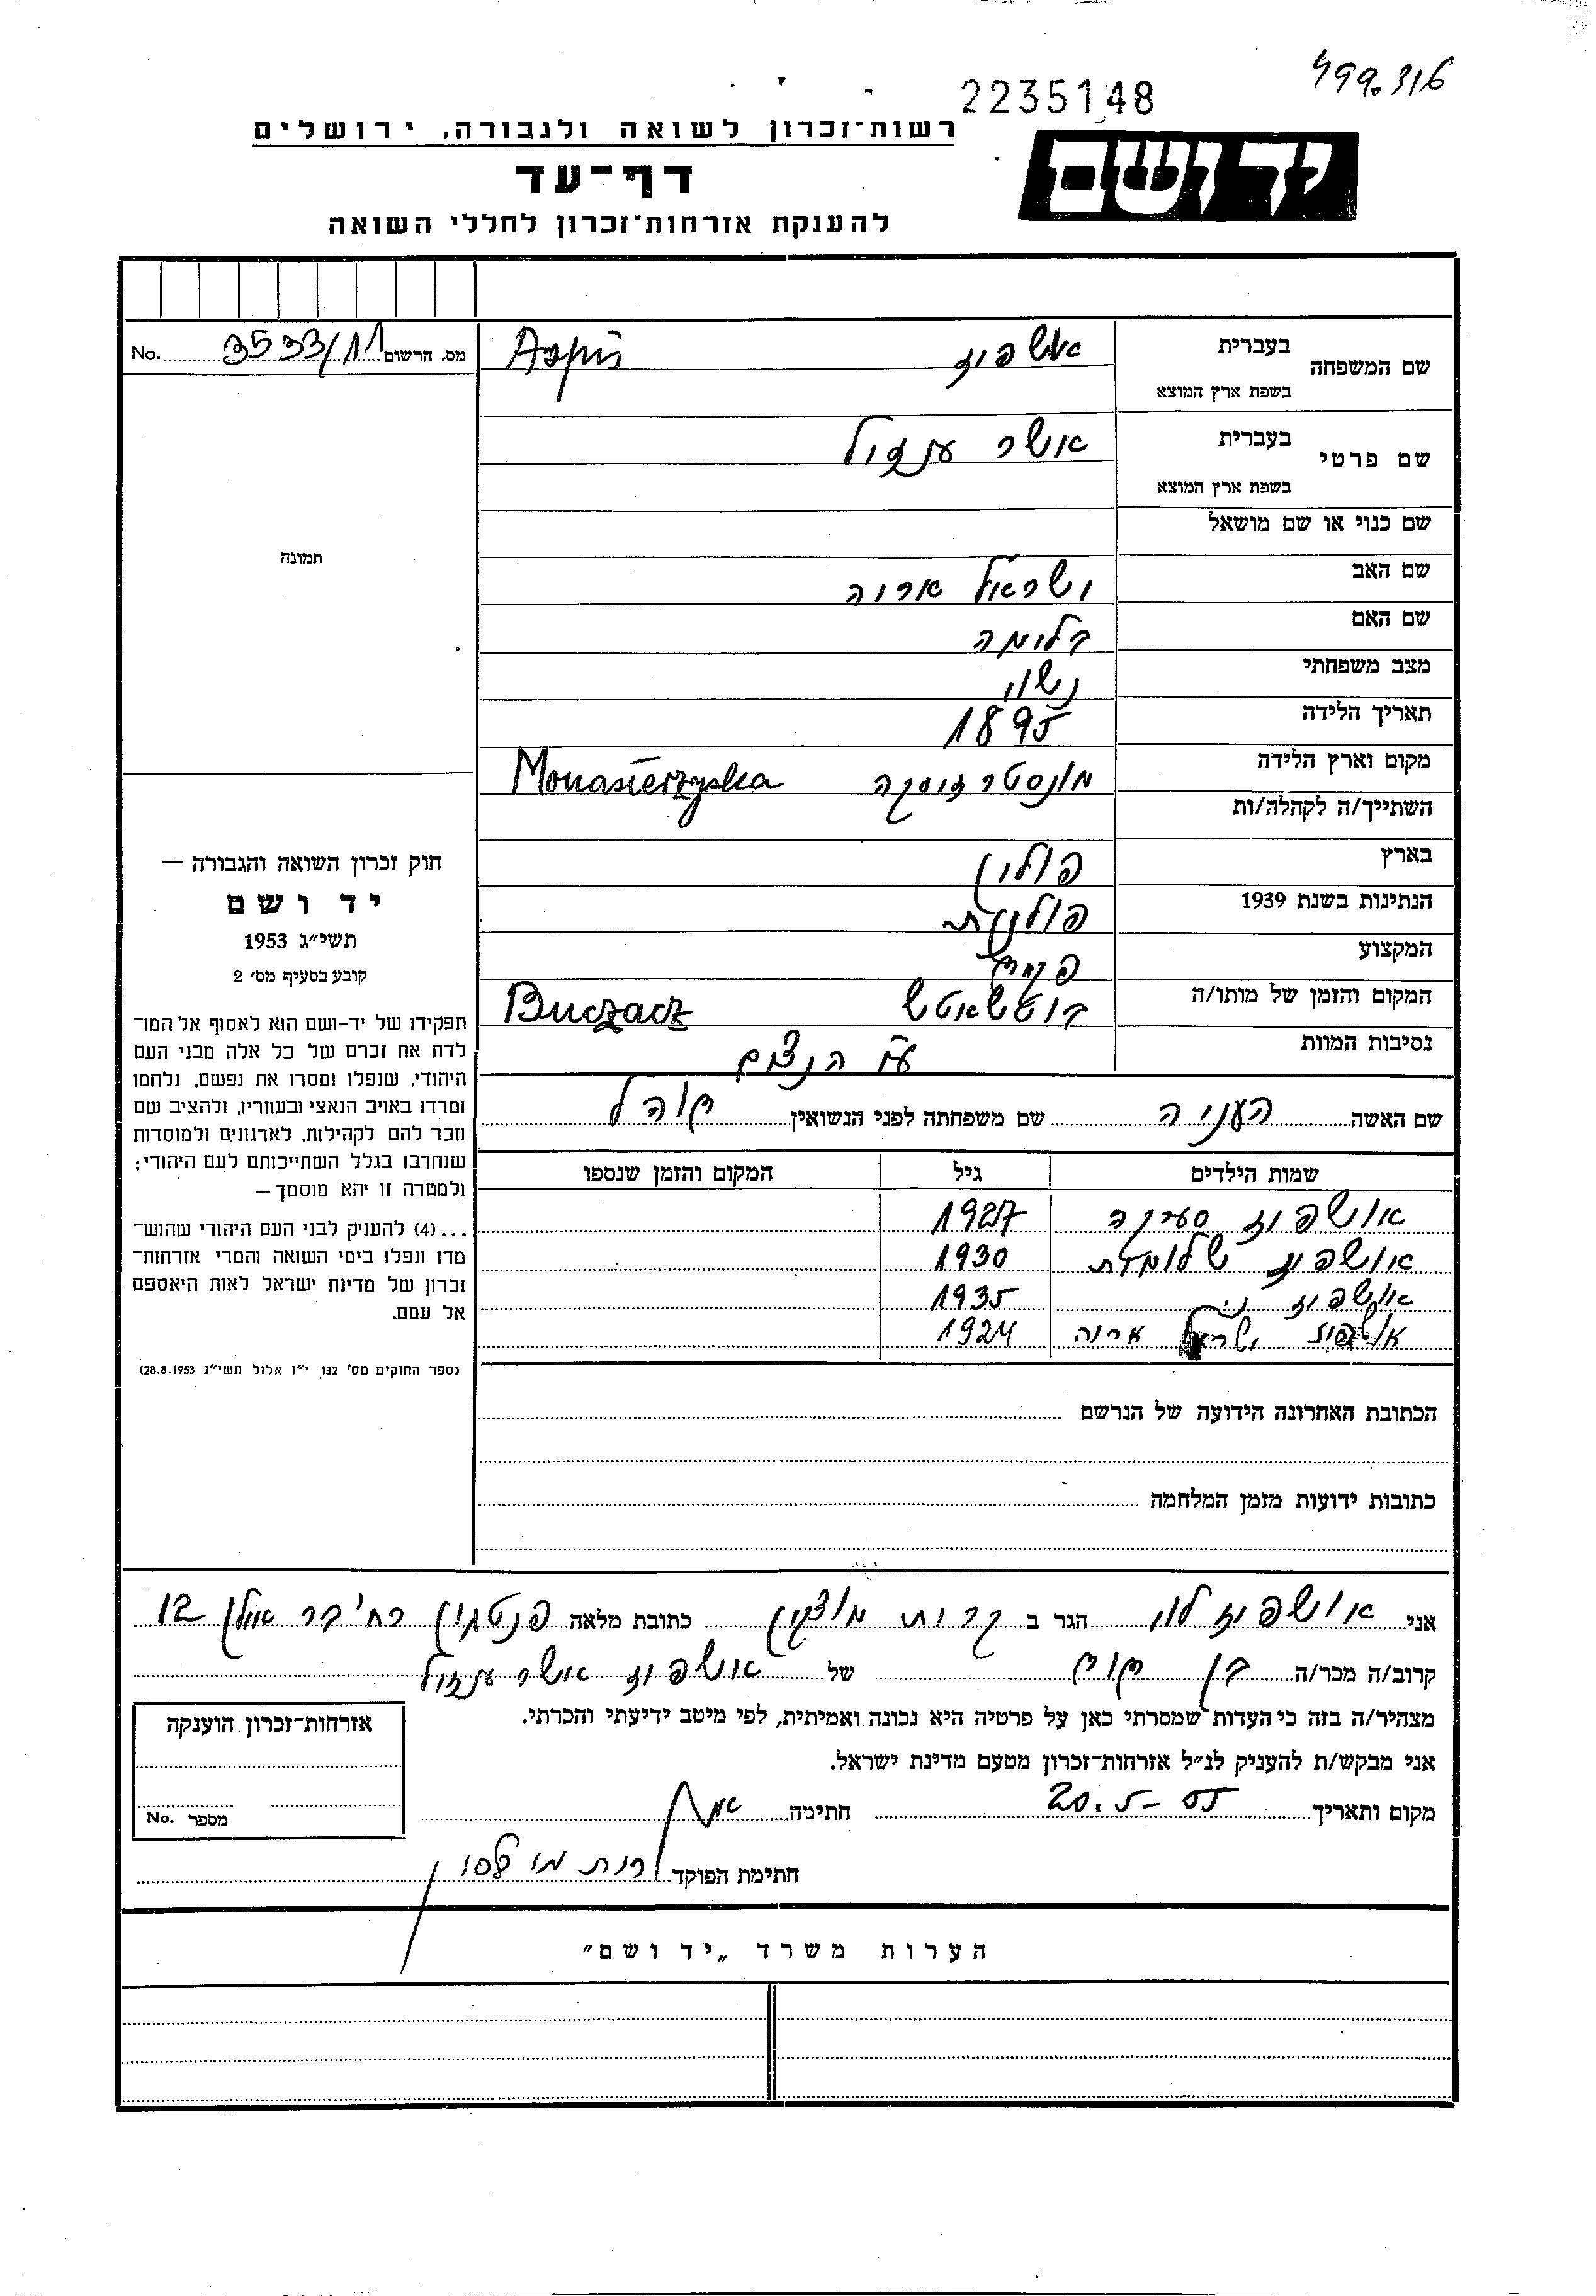 499.316
2235148
רשות־זכרון לשואה ולגבורה, ירושלים
יד ושם
דף־עד
להענקת אזרחות־זכרון לחללי השואה
מס. הרשום 3533/11 No.
שם המשפחה בעברית Aspis
בשפת ארץ המוצא
שם פרטי בעברית אושר
בשפת ארץ המוצא
שם כנוי או שם מושאל
תמונה
שם האב ישראל אריה
שם האם בלומה
מצב משפחתי נשוי
תאריך הלידה 1895
מקום וארץ הלידה מונסטרז'יסקה Monasterzyska
השתייך/ה לקהלה/ות
בארץ פולין
הנתינות בשנת 1939 פולנית
המקצוע
המקום והזמן של מותו/ה בוטשאטש Buczacz
נסיבות המוות
חוק זכרון השואה והגבורה —
יד ושם
תשי״ג 1953
קובע בסעיף מס׳ 2
תפקידו של יד-ושם הוא לאסוף אל המו־
לדת את זכרם של כל אלה מבני העם
היהודי, שנפלו ומסרו את נפשם, נלחמו
ומרדו באויב הנאצי ובעוזריו, ולהציב שם
וזכר להם לקהילות, לארגונים ולמוסדות
שנחרבו בגלל השתייכותם לעם היהודי;
ולמטרה זו יהא מוסמך—
...(4) להעניק לבני העם היהודי שהוש־
מדו ונפלו בימי השואה והמרי אזרחות־
זכרון של מדינת ישראל לאות היאספם
אל עמם.
(ספר החוקים מס׳ 132, י״ז אלול תשי״ג 28.8.1953)
שם האשה העניה שם משפחתה לפני הנשואין
שמות הילדים גיל המקום והזמן שנספו
אושפיז 1927
אושפיז שלומית 1930
אושפיז 1935
אושפיז ישראל אריה 1924
הכתובת האחרונה הידועה של הנרשם
כתובות ידועות מזמן המלחמה
אני אושפיז לוי הגר ב קרית מוצקין כתובת מלאה 12
קרוב/ה מכר/ה בן דוד של אושפיז אושר
מצהיר/ה בזה כי העדות שמסרתי כאן על פרטיה היא נכונה ואמיתית, לפי מיטב ידיעתי והכרתי.
אני מבקש/ת להעניק לנ״ל אזרחות־זכרון מטעם מדינת ישראל.
מקום ותאריך 20.5-55 חתימה
חתימת הפוקד
אזרחות־זכרון הוענקה
מספר No.
הערות משרד „יד ושם״